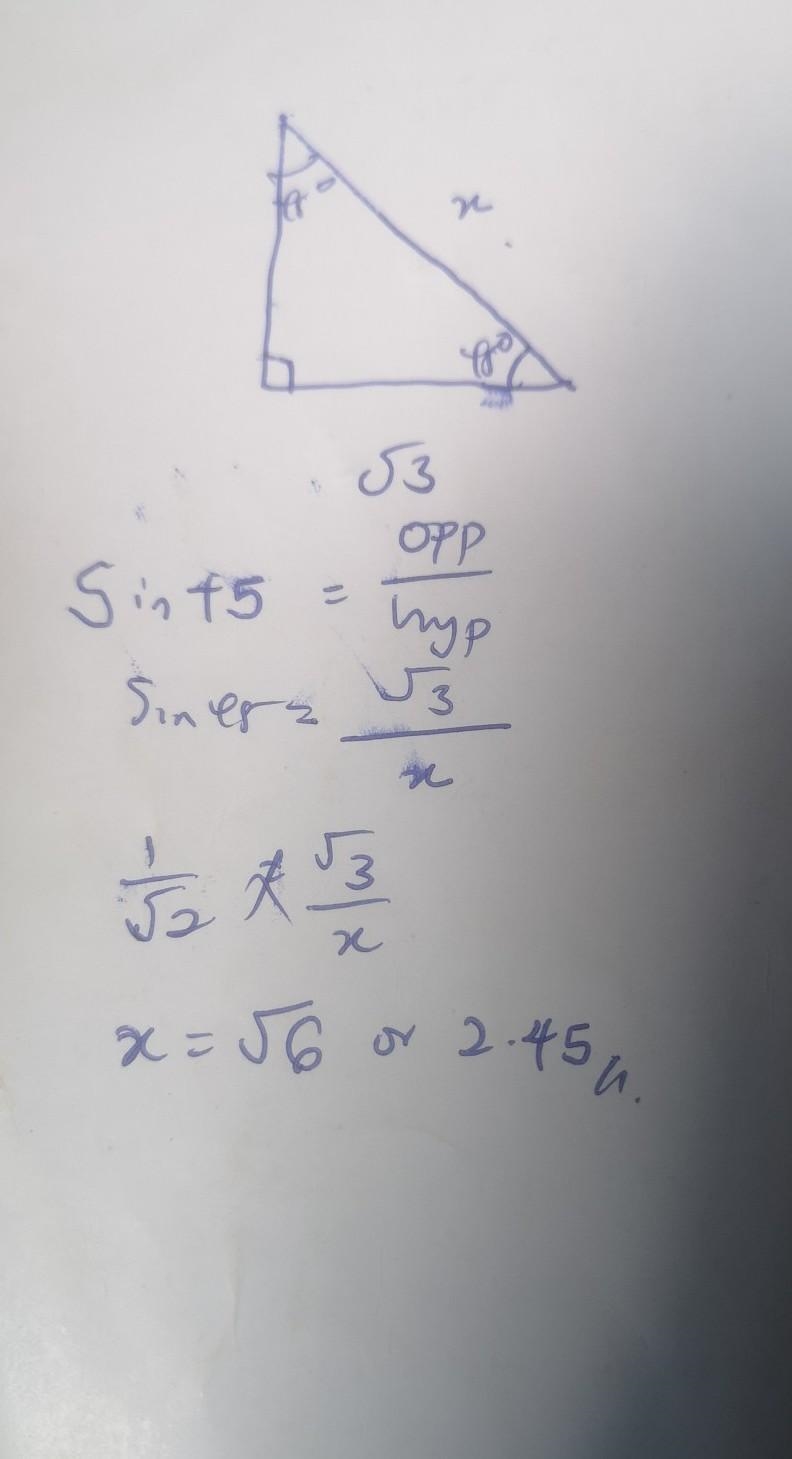 45°
x
45°
√3
Sin 45 = opp/hyp
Sin 45 = √3/x
1/√2 × √3/x
x = √6 or 2.45